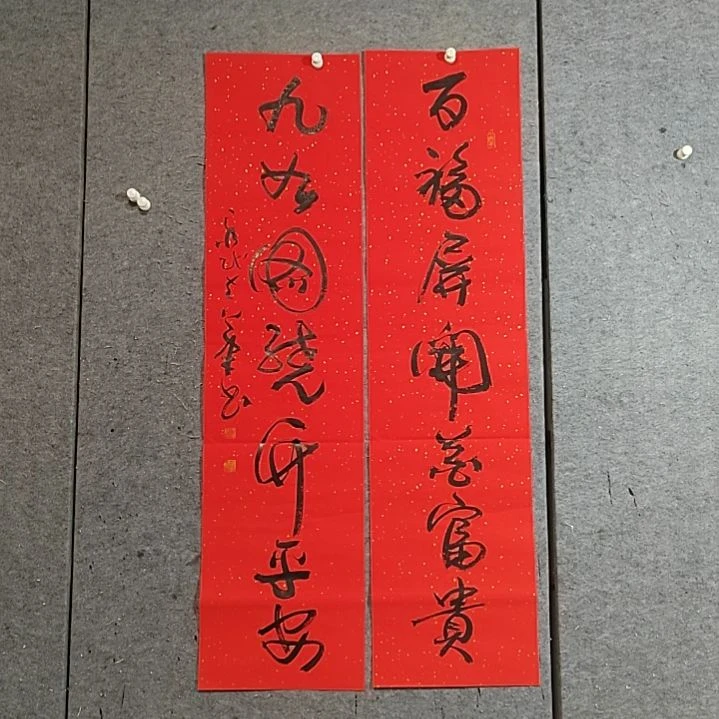 百福屏開花富貴
九如圖繞竹平安